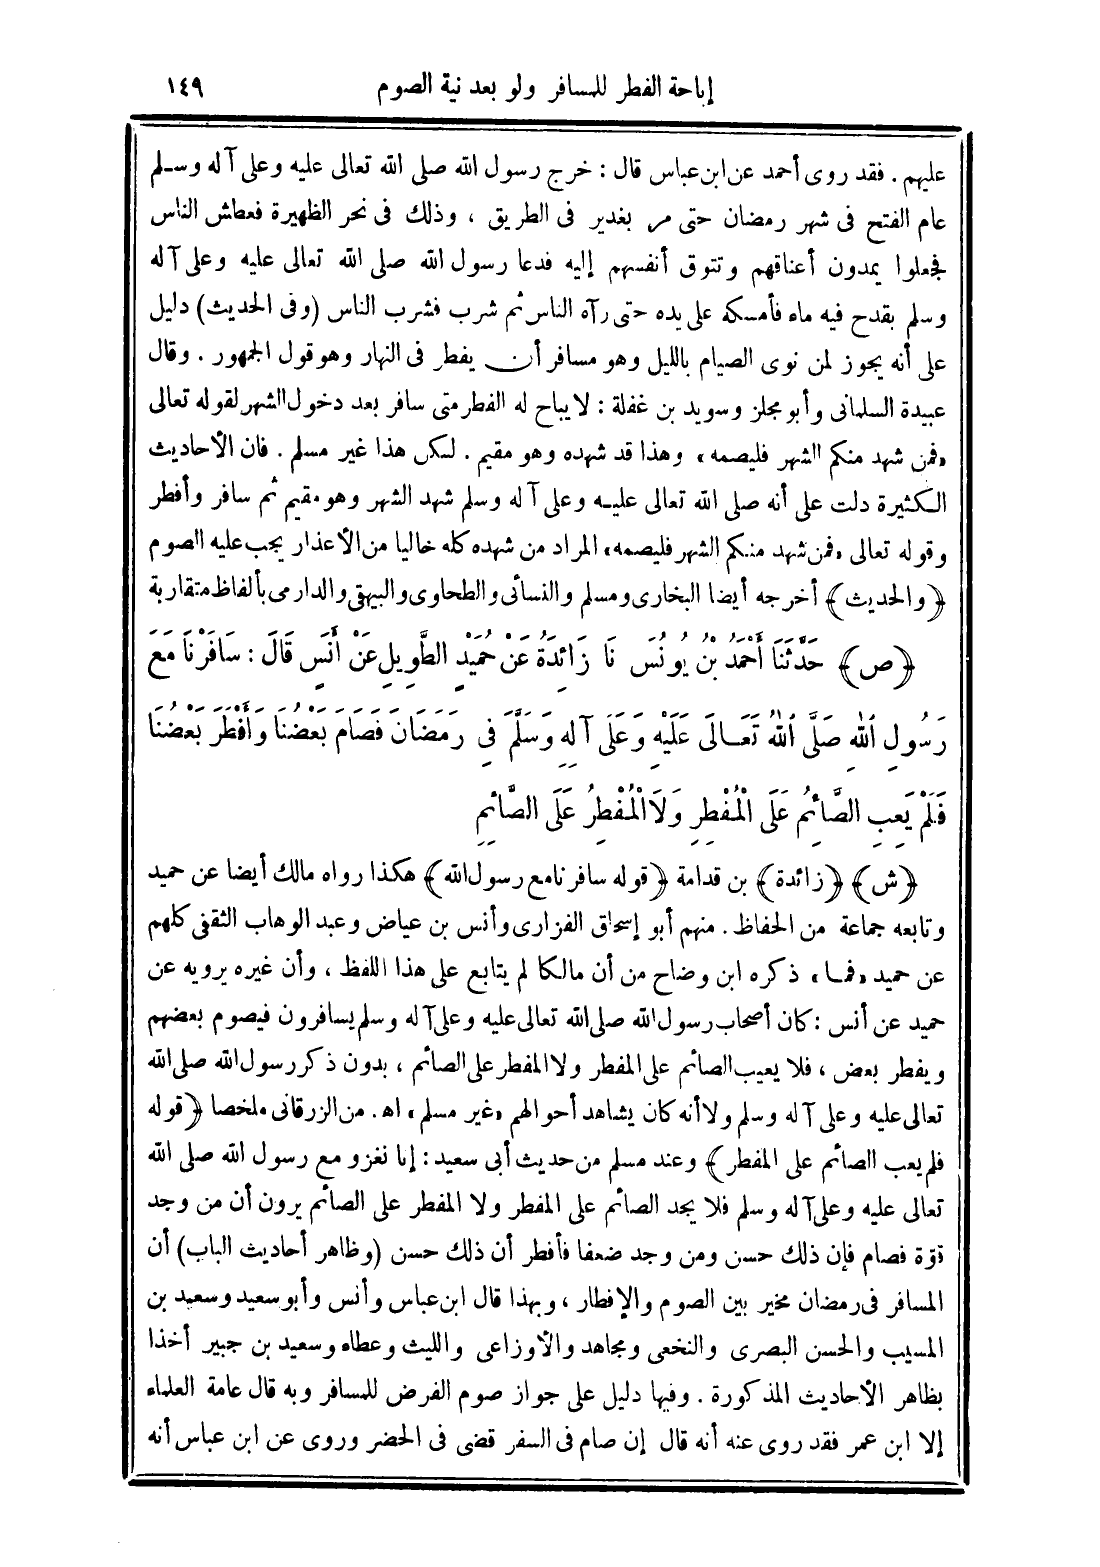 إباحة الفطر للمسافر ولو بعد نية الصوم ١٤٩
عليهم . فقد روى أحمد عن ابن عباس قال : خرج رسول الله صلى الله تعالى عليه وعلى آله وسلم
عام الفتح فى شهر رمضان حتى مر بغدير فى الطريق ، وذلك فى نحر الظهيرة فعطش الناس
فجعلوا يمدون أعناقهم وتتوق أنفسهم إليه فدعا رسول الله صلى الله تعالى عليه وعلى آله
وسلم بقدح فيه ماء فأمسكه على يده حتى رآه الناس ثم شرب فشرب الناس (وفى الحديث) دليل
على أنه يجوز لمن نوى الصيام بالليل وهو مسافر أن يفطر فى النهار وهو قول الجمهور . وقال
عبيدة السلمانى وأبو مجلز وسويد بن غفلة : لا يباح له الفطر متى سافر بعد دخول الشهر لقوله تعالى
«فمن شهد منكم الشهر فليصمه» وهذا قد شهده وهو مقيم . لكن هذا غير مسلم . فان الأحاديث
الكثيرة دلت على أنه صلى الله تعالى عليه وعلى آله وسلم شهد الشهر وهو مقيم ثم سافر وأفطر
وقوله تعالى «فمن شهد منكم الشهر فليصمه» المراد من شهده كله خاليا من الأعذار يجب عليه الصوم
﴿والحديث﴾ أخرجه أيضا البخارى ومسلم والنسائى والطحاوى والبيهقى والدارمى بألفاظ متقاربة
﴿ص﴾ حَدَّثَنَا أَحْمَدُ بْنُ يُونُسَ نَا زَائِدَةُ عَنْ حُمَيْدٍ الطَّوِيلِ عَنْ أَنَسٍ قَالَ : سَافَرْنَا مَعَ
رَسُولِ ٱللهِ صَلَّى ٱللهُ تَعَالَى عَلَيْهِ وَعَلَى آلِهِ وَسَلَّمَ فِى رَمَضَانَ فَصَامَ بَعْضُنَا وَأَفْطَرَ بَعْضُنَا
فَلَمْ يَعِبِ الصَّائِمُ عَلَى الْمُفْطِرِ وَلَا الْمُفْطِرُ عَلَى الصَّائِمِ
﴿ش﴾ ﴿زائدة﴾ بن قدامة ﴿قوله سافرنا مع رسول الله﴾ هكذا رواه مالك أيضا عن حميد
وتابعه جماعة من الحفاظ . منهم أبو إسحاق الفزارى وأنس بن عياض وعبد الوهاب الثقفى كلهم
عن حميد «فما» ذكره ابن وضاح من أن مالكا لم يتابع على هذا اللفظ ، وأن غيره يرويه عن
حميد عن أنس : كان أصحاب رسول الله صلى الله تعالى عليه وعلى آله وسلم يسافرون فيصوم بعضهم
ويفطر بعض ، فلا يعيب الصائم على المفطر ولا المفطر على الصائم ، بدون ذكر رسول الله صلى الله
تعالى عليه وعلى آله وسلم ولا أنه كان يشاهد أحوالهم «غير مسلم» اهـ. من الزرقانى ملخصا ﴿قوله
فلم يعب الصائم على المفطر﴾ وعند مسلم من حديث أبى سعيد : إنا نغزو مع رسول الله صلى الله
تعالى عليه وعلى آله وسلم فلا يجد الصائم على المفطر ولا المفطر على الصائم يرون أن من وجد
قوّة فصام فإن ذلك حسن ومن وجد ضعفا فأفطر أن ذلك حسن (وظاهر أحاديث الباب) أن
المسافر فى رمضان مخير بين الصوم والإفطار ، وبهذا قال ابن عباس وأنس وأبو سعيد وسعيد بن
المسيب والحسن البصرى والنخعى ومجاهد والأوزاعى والليث وعطاء وسعيد بن جبير أخذا
بظاهر الأحاديث المذكورة . وفيها دليل على جواز صوم الفرض للمسافر وبه قال عامة العلماء
إلا ابن عمر فقد روى عنه أنه قال إن صام فى السفر قضى فى الحضر وروى عن ابن عباس أنه